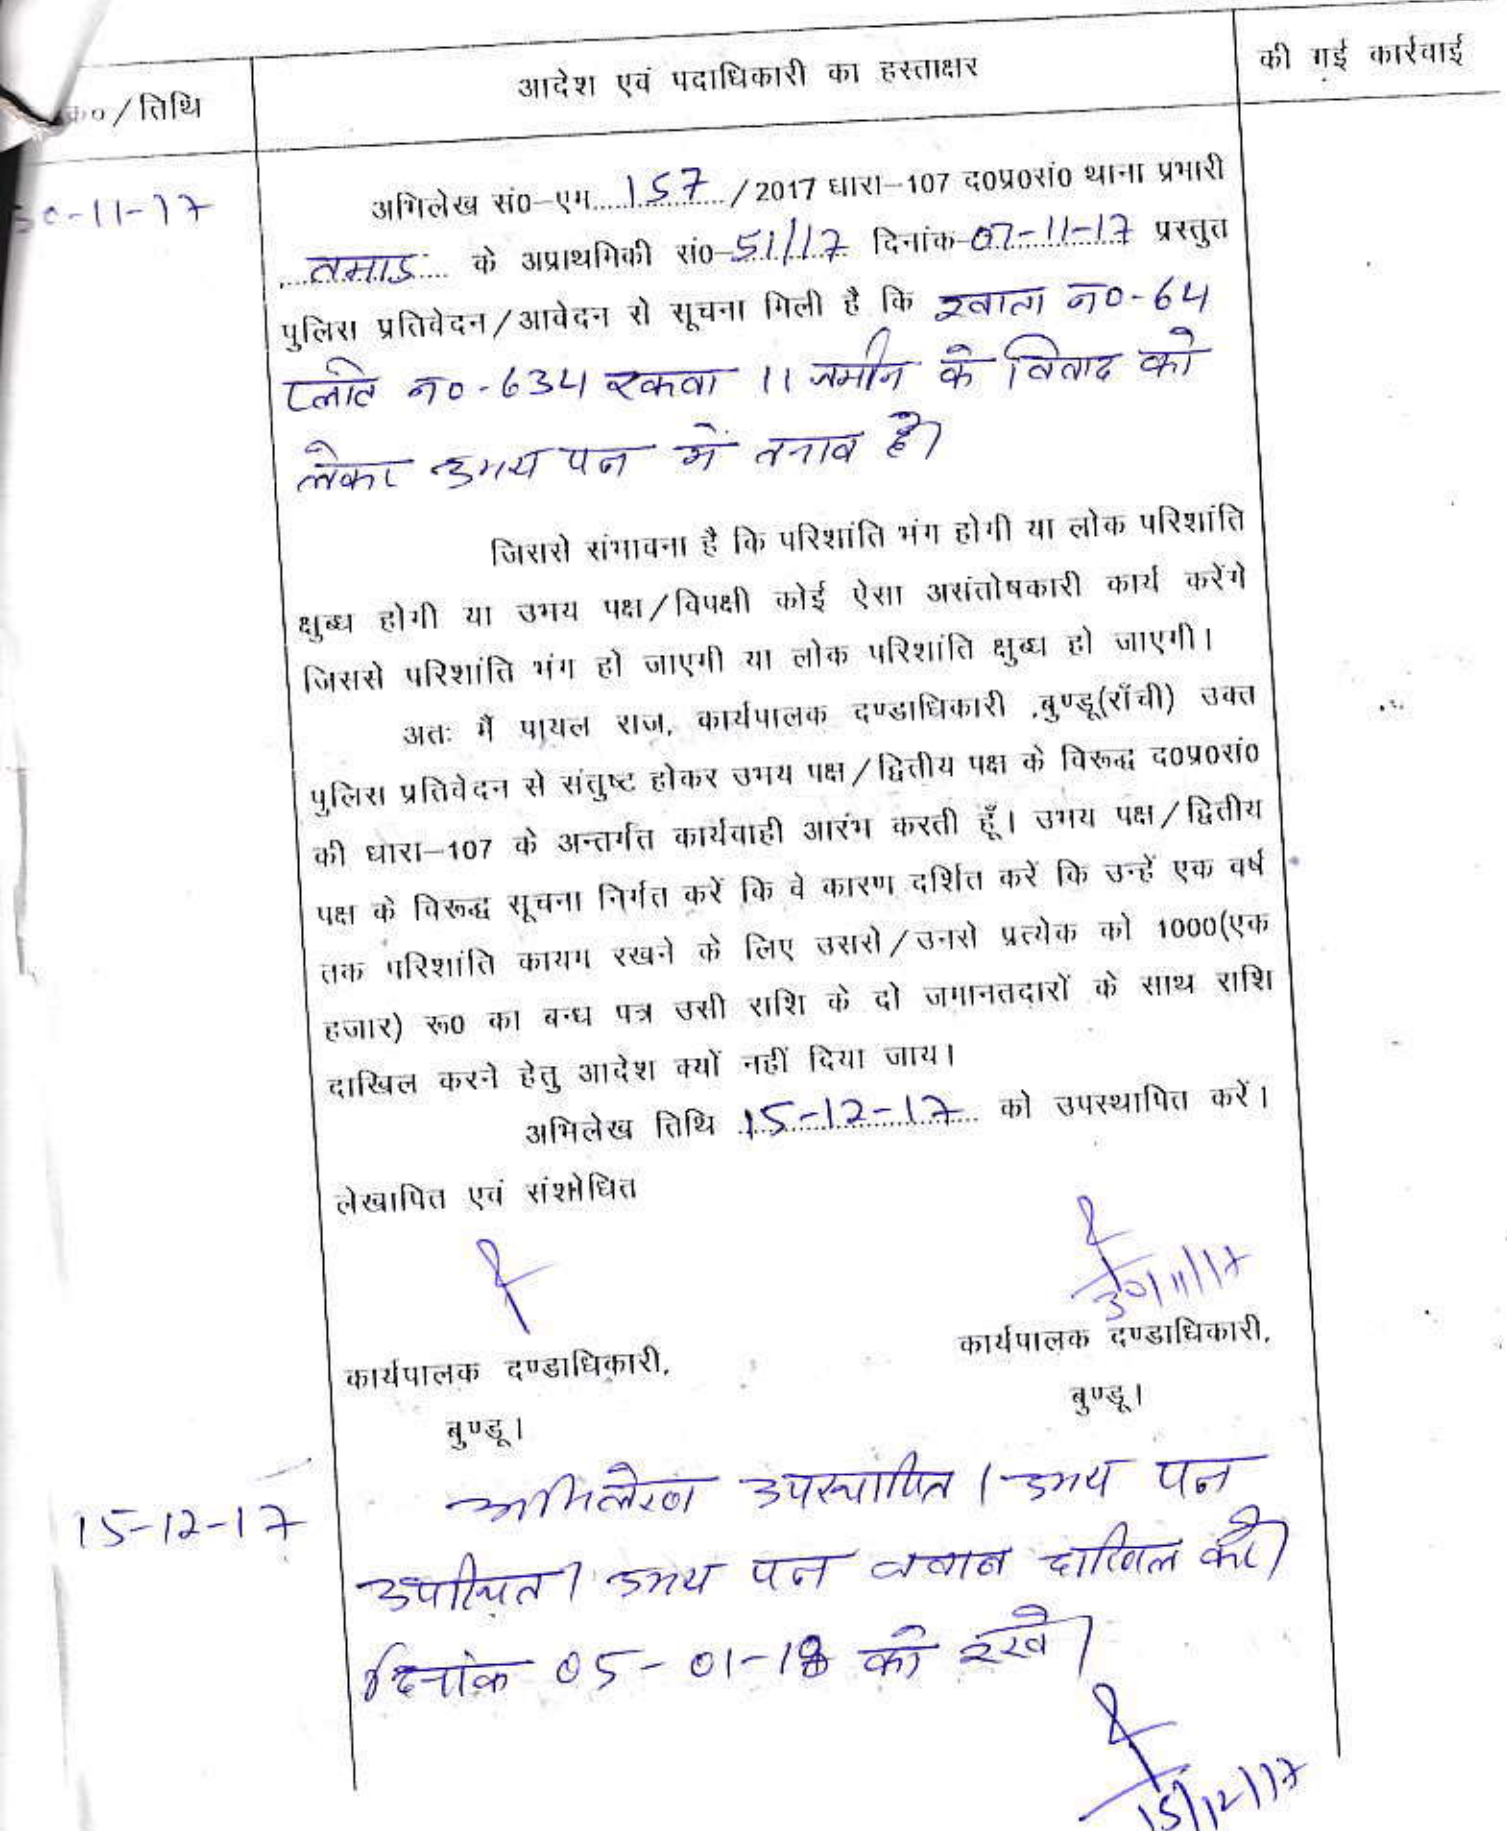 क्र०/तिथि
आदेश एवं पदाधिकारी का हस्ताक्षर
की गई कार्रवाई
30-11-17
अभिलेख सं0-एम 157 /2017 धारा-107 द0प्र0सं0 थाना प्रभारी
तमाड़ के अप्राथमिकी सं0-51/17 दिनांक-07-11-17 प्रस्तुत
पुलिस प्रतिवेदन/आवेदन से सूचना मिली है कि खाता न०-64
प्लॉट न०-634 रकवा 11 जमीन के विवाद को
लेकर उभय पक्ष में तनाव है।
जिससे संभावना है कि परिशांति भंग होगी या लोक परिशांति
क्षुब्ध होगी या उभय पक्ष/विपक्षी कोई ऐसा असंतोषकारी कार्य करेंगे
जिससे परिशांति भंग हो जाएगी या लोक परिशांति क्षुब्ध हो जाएगी।
अतः मैं पायल राज, कार्यपालक दण्डाधिकारी ,बुण्डू(राँची) उक्त
पुलिस प्रतिवेदन से संतुष्ट होकर उभय पक्ष/द्वितीय पक्ष के विरूद्ध द0प्र0सं0
की धारा-107 के अन्तर्गत कार्यवाही आरंभ करती हूँ। उभय पक्ष/द्वितीय
पक्ष के विरूद्ध सूचना निर्गत करें कि वे कारण दर्शित करें कि उन्हें एक वर्ष
तक परिशांति कायम रखने के लिए उससे/उनसे प्रत्येक को 1000(एक
हजार) रू0 का बन्ध पत्र उसी राशि के दो जमानतदारों के साथ राशि
दाखिल करने हेतु आदेश क्यों नहीं दिया जाय।
अभिलेख तिथि 15-12-17 को उपस्थापित करें।
लेखापित एवं संशोधित
30/11/17
कार्यपालक दण्डाधिकारी, कार्यपालक दण्डाधिकारी,
बुण्डू। बुण्डू।
15-12-17
अभिलेख उपस्थापित। उभय पक्ष
उपस्थित। उभय पक्ष जवाब दाखिल करें।
दिनांक 05-01-18 को रखें।
15/12/17